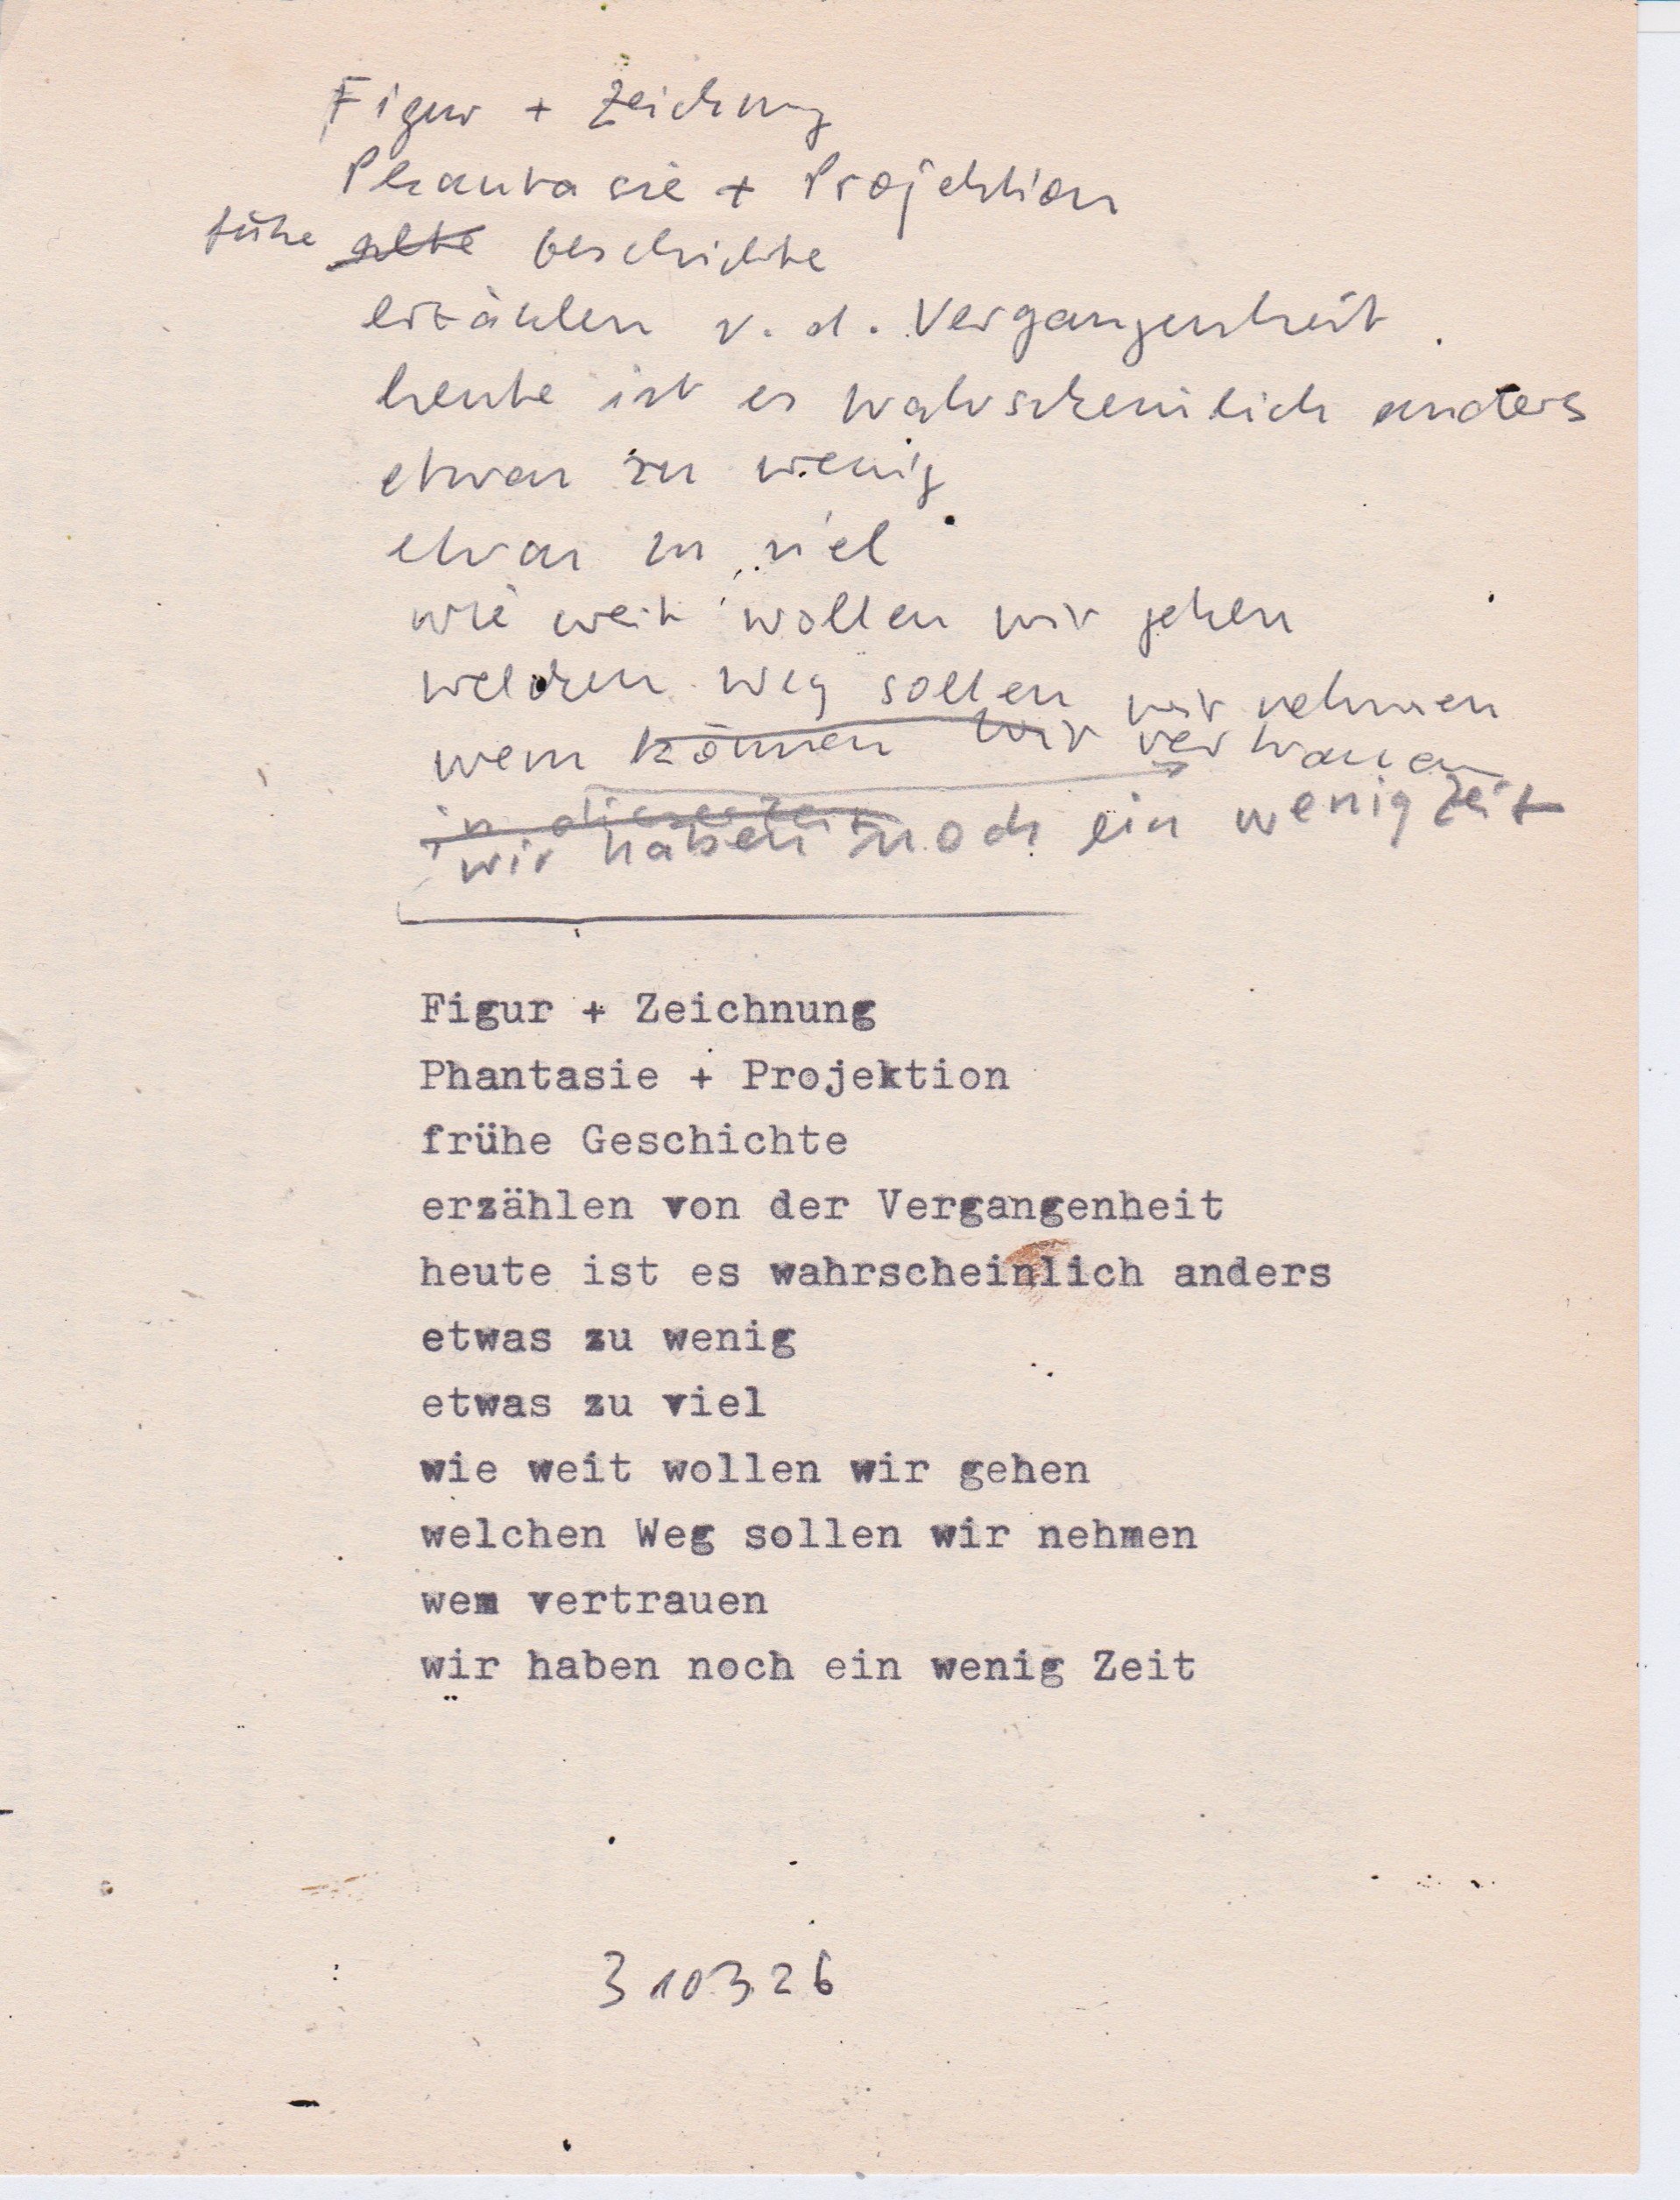 Figur + Zeichnung
Phantasie + Projektion
frühe alte Geschichte
erzählen v. d. Vergangenheit
heute ist es wahrscheinlich anders
etwas zu wenig
etwas zu viel
wie weit wollen wir gehen
welchen Weg sollen wir nehmen
wem können wir vertrauen
in dieser Zeit
wir haben noch ein wenig Zeit
Figur + Zeichnung
Phantasie + Projektion
frühe Geschichte
erzählen von der Vergangenheit
heute ist es wahrscheinlich anders
etwas zu wenig
etwas zu viel
wie weit wollen wir gehen
welchen Weg sollen wir nehmen
wem vertrauen
wir haben noch ein wenig Zeit
310326